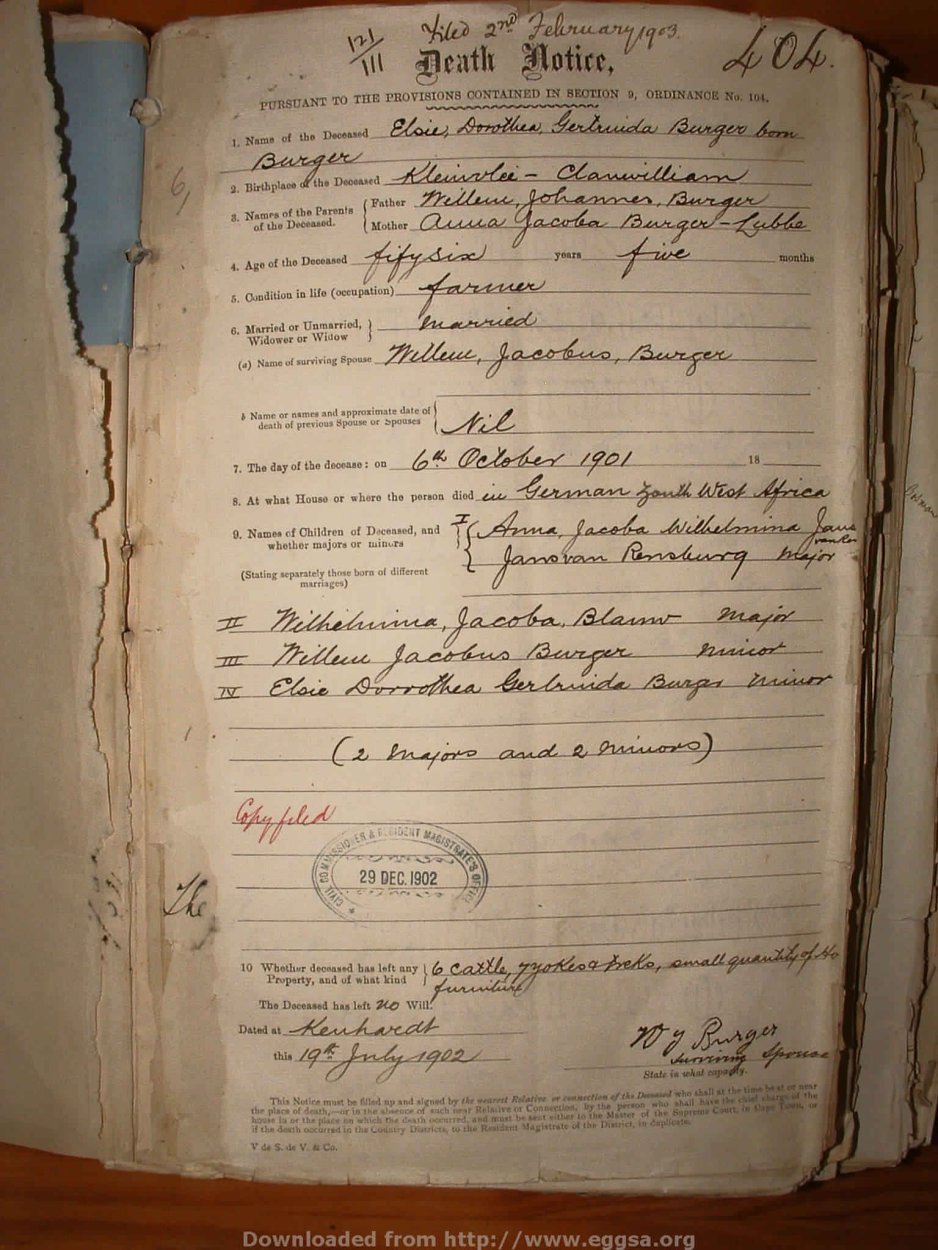 121/111 Filed 2nd February 1903. 404.
Death Notice,
PURSUANT TO THE PROVISIONS CONTAINED IN SECTION 9, ORDINANCE No. 104.
1. Name of the Deceased Elsie, Dorothea, Gertruida Burger born
Burger
6,
2. Birthplace of the Deceased Kleinvlei - Clanwilliam
3. Names of the Parents of the Deceased. { Father Willem, Johannes, Burger
Mother Anna Jacoba Burger - Lubbe
4. Age of the Deceased fifysix years five months
5. Condition in life (occupation) farmer
6. Married or Unmarried, Widower or Widow } married
(a) Name of surviving Spouse Willem, Jacobus, Burger
b Name or names and approximate date of death of previous Spouse or Spouses { Nil
7. The day of the decease: on 6th October 1901 18
8. At what House or where the person died in German South West Africa
9. Names of Children of Deceased, and whether majors or minors I { Anna, Jacoba Wilhelmina Jans
Jans van Rensburg major
(Stating separately those born of different marriages)
II Wilhelmina, Jacoba, Blauw major
III Willem Jacobus Burger minor
IV Elsie Dorrothea Gertruida Burger minor
(2 majors and 2 minors)
Copy filed
CIVIL COMMISSIONER & RESIDENT MAGISTRATE'S OFFICE
29 DEC. 1902
The
10 Whether deceased has left any Property, and of what kind } 6 cattle, 7 yokes & treks, small quantity of Ho
furniture
The Deceased has left no Will.
Dated at Kenhardt
this 19th July 1902
W J Burger
Surviving Spouse
State in what capacity.
This Notice must be filled up and signed by the nearest Relative or connection of the Deceased who shall at the time be at or near
the place of death,—or in the absence of such near Relative or Connection, by the person who shall have the chief charge of the
house in or the place on which the death occurred, and must be sent either to the Master of the Supreme Court, in Cape Town, or
if the death occurred in the Country Districts, to the Resident Magistrate of the District, in duplicate.
V de S. de V. & Co.
Downloaded from http://www.eggsa.org